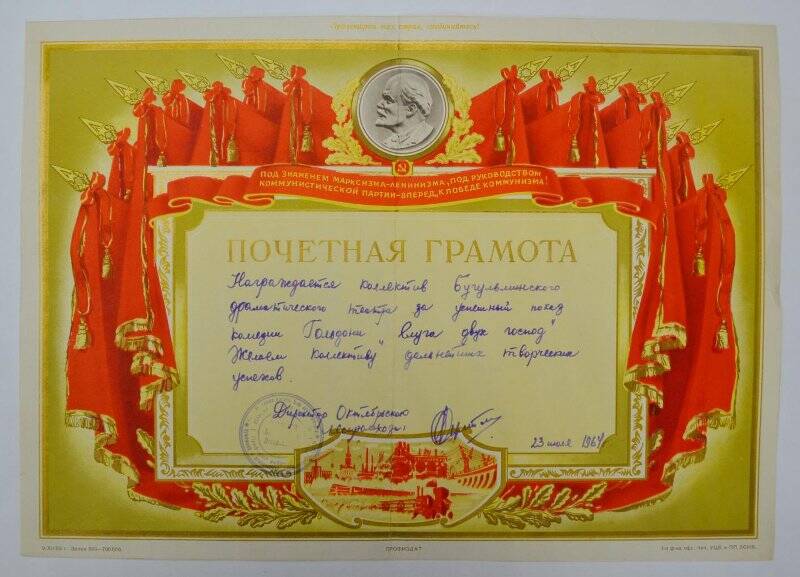 Пролетарии всех стран, соединяйтесь!
ПОД ЗНАМЕНЕМ МАРКСИЗМА-ЛЕНИНИЗМА, ПОД РУКОВОДСТВОМ
КОММУНИСТИЧЕСКОЙ ПАРТИИ-ВПЕРЕД, К ПОБЕДЕ КОММУНИЗМА!
ПОЧЕТНАЯ ГРАМОТА
Награждается коллектив Бугульминского
драматического театра за успешный показ
комедии Гольдони "Слуга двух господ"
Желаем коллективу дальнейших творческих
успехов.
Директор Октябрьского
23 июля 1964
ПРОФИЗДАТ